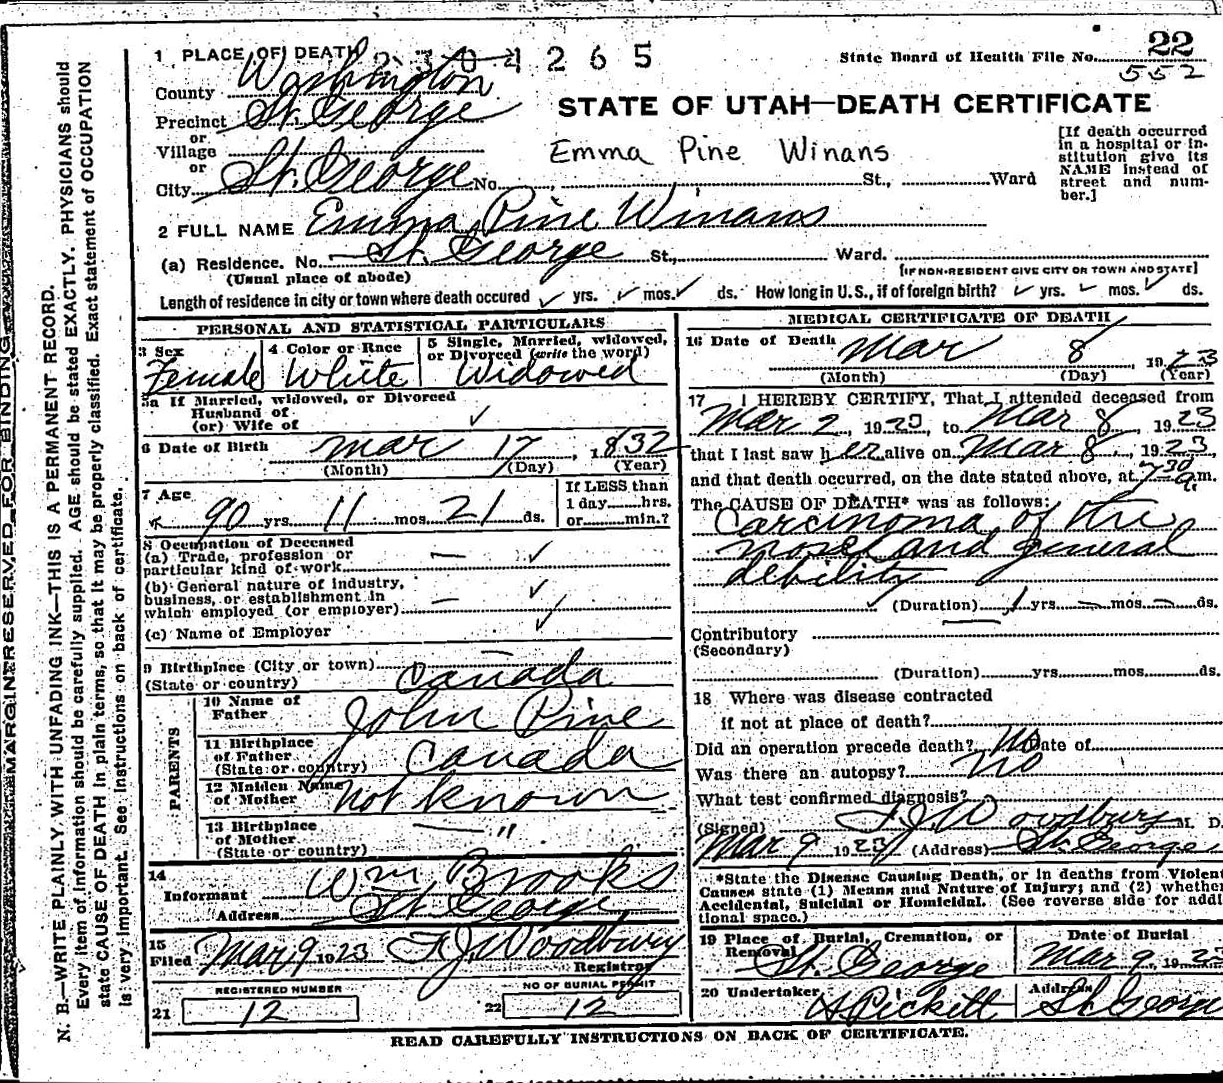 22
State Board of Health File No.
552
1 PLACE OF DEATH 2304265
County Washington
Precinct St. George
or
Village
or
City St. George No. St., Ward
STATE OF UTAH—DEATH CERTIFICATE
Emma Pine Winans
[If death occurred
in a hospital or in-
stitution give its
NAME instead of
street and num-
ber.]
2 FULL NAME Emma Pine Winans
(a) Residence. No. St. George St., Ward.
(Usual place of abode)
[IF NON-RESIDENT GIVE CITY OR TOWN AND STATE]
Length of residence in city or town where death occured yrs. mos. ds. How long in U.S., if of foreign birth? yrs. mos. ds.
PERSONAL AND STATISTICAL PARTICULARS
3 Sex
Female
4 Color or Race
White
5 Single, Married, widowed,
or Divorced (write the word)
Widowed
5a If Married, widowed, or Divorced
Husband of
(or) Wife of
6 Date of Birth Mar 17, 1832
(Month) (Day) (Year)
7 Age
90 yrs. 11 mos. 21 ds.
If LESS than
1 day hrs.
or min.?
8 Occupation of Deceased
(a) Trade, profession or
particular kind of work
(b) General nature of industry,
business, or establishment in
which employed (or employer)
(c) Name of Employer
9 Birthplace (City or town) Canada
(State or country)
PARENTS
10 Name of
Father John Pine
11 Birthplace
of Father Canada
(State or country)
12 Maiden Name
of Mother not known
13 Birthplace
of Mother — "
(State or country)
14
Informant Wm Brooks
Address St. George
15
Filed Mar 9 1923 F.J. Woodbury
Registrar
REGISTERED NUMBER
21 12
NO OF BURIAL PERMIT
22 12
MEDICAL CERTIFICATE OF DEATH
16 Date of Death Mar 8, 1923
(Month) (Day) (Year)
17 I HEREBY CERTIFY, That I attended deceased from
Mar 2, 1923, to Mar 8, 1923
that I last saw her alive on Mar 8, 1923,
and that death occurred, on the date stated above, at 7 30 a.m.
The CAUSE OF DEATH* was as follows:
Carcinoma of the
nose and general
debility
(Duration) 1 yrs. — mos. — ds.
Contributory
(Secondary)
(Duration) yrs. mos. ds.
18 Where was disease contracted
if not at place of death?
Did an operation precede death? No Date of
Was there an autopsy? No
What test confirmed diagnosis?
(Signed) F.J. Woodbury M. D.
Mar 9 1923 (Address) St. George
*State the Disease Causing Death, or in deaths from Violent
Causes state (1) Means and Nature of Injury; and (2) whether
Accidental, Suicidal or Homicidal. (See reverse side for addi
tional space.)
19 Place of Burial, Cremation, or
Removal
St. George
Date of Burial
Mar 9, 1923
20 Undertaker Pickett
Address St. George
READ CAREFULLY INSTRUCTIONS ON BACK OF CERTIFICATE.
MARGIN RESERVED FOR BINDING
N. B.—WRITE PLAINLY WITH UNFADING INK—THIS IS A PERMANENT RECORD.
Every item of information should be carefully supplied. AGE should be stated EXACTLY. PHYSICIANS should
state CAUSE OF DEATH in plain terms, so that it may be properly classified. Exact statement of OCCUPATION
is very important. See instructions on back of certificate.